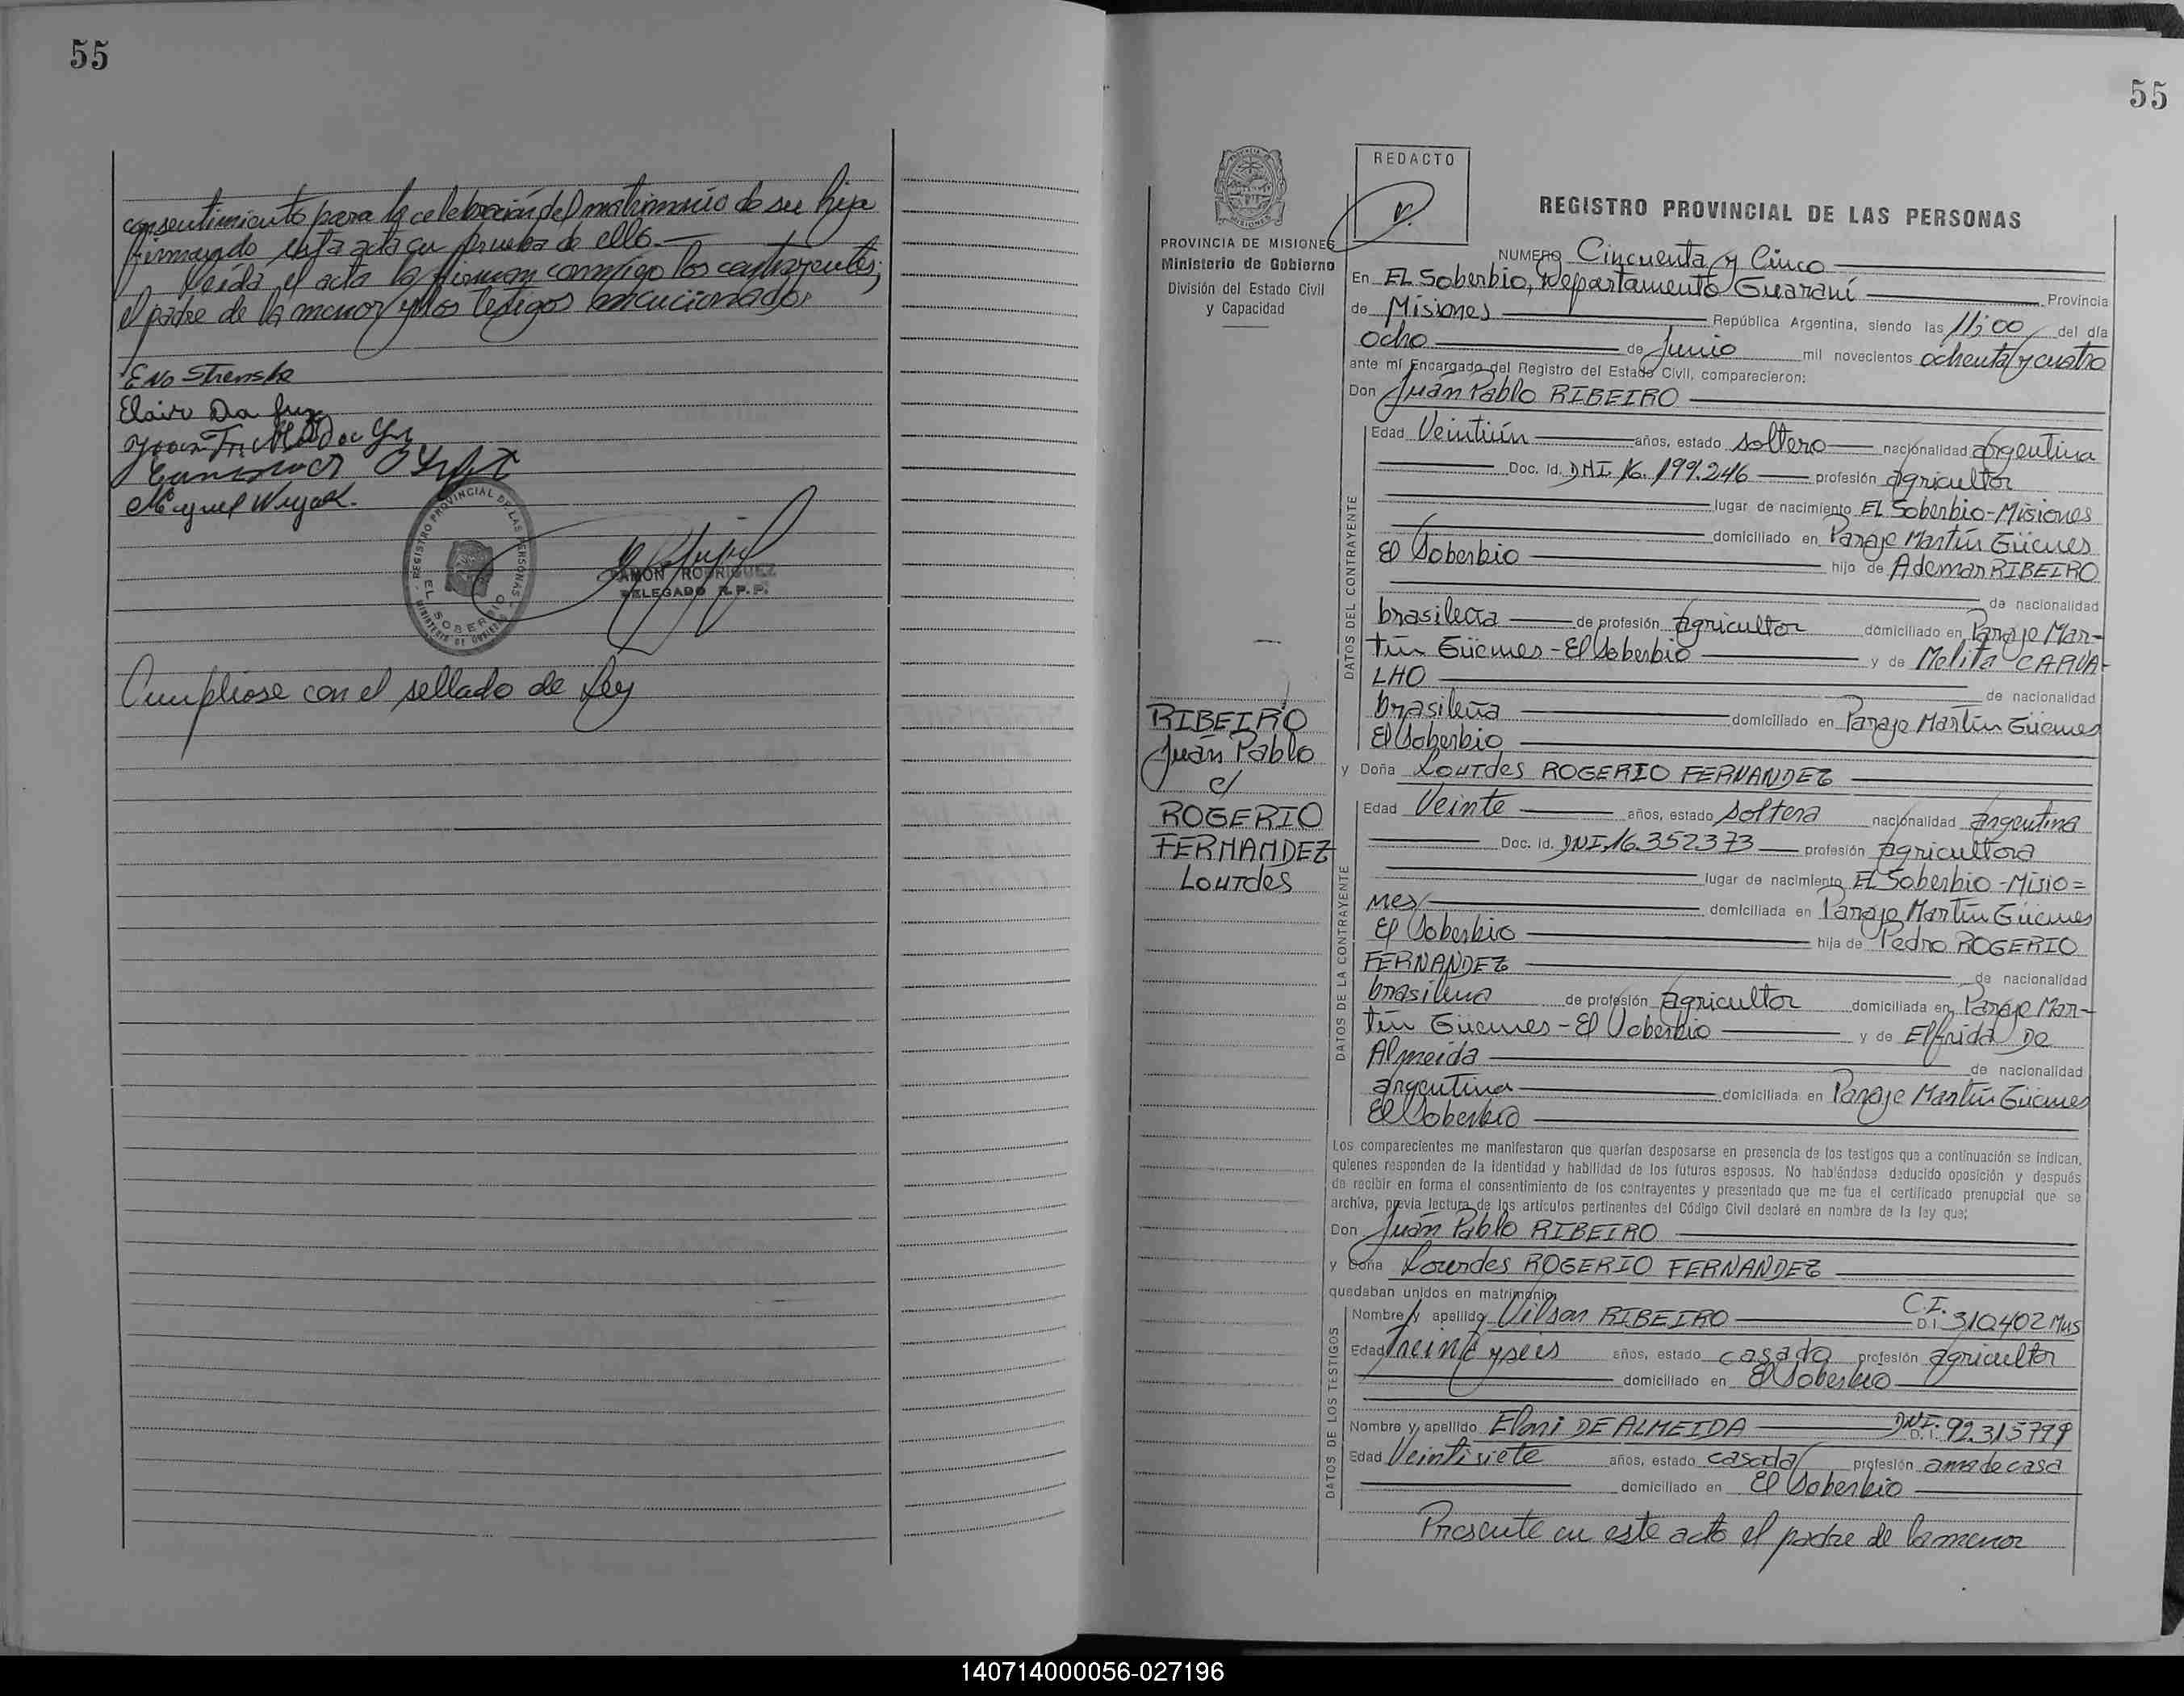 55
consentimiento para la celebración del matrimonio de su hija
firmando esta acta en prueba de ello.—
Leída el acta la firman conmigo los contrayentes,
el padre de la menor y los testigos mencionados
Eno Strenske
Elair Da Luz
Miguel Wujek.
REGISTRO PROVINCIAL DE LAS PERSONAS
EL SOBERBIO
MINISTERIO DE GOBIERNO
RAMON RODRIGUEZ
DELEGADO R.P.P.
Cumpliose con el sellado de Ley
55
REDACTO
PROVINCIA DE MISIONES
Ministerio de Gobierno
División del Estado Civil
y Capacidad
REGISTRO PROVINCIAL DE LAS PERSONAS
NUMERO Cincuenta y Cinco
En EL Soberbio, Departamento Guaraní Provincia
de Misiones República Argentina, siendo las 11;00 del día
ocho de Junio mil novecientos ochenta y cuatro
ante mí Encargado del Registro del Estado Civil, comparecieron:
Don Juan Pablo RIBEIRO
DATOS DEL CONTRAYENTE
Edad Veintiún años, estado soltero nacionalidad argentina
Doc. Id. DNI. 16.199.246 profesión agricultor
lugar de nacimiento EL Soberbio-Misiones
domiciliado en Paraje Martín Güemes
El Soberbio hijo de Ademar RIBEIRO
de nacionalidad
brasileña de profesión agricultor domiciliado en Paraje Mar-
tín Güemes - El Soberbio y de Melita CARVA-
LHO de nacionalidad
brasileña domiciliado en Paraje Martín Güemes
El Soberbio
RIBEIRO
Juan Pablo
c/
ROGERIO
FERNANDEZ
Lourdes
y Doña Lourdes ROGERIO FERNANDEZ
DATOS DE LA CONTRAYENTE
Edad Veinte años, estado soltera nacionalidad argentina
Doc. Id. DNI.16.352373 profesión agricultora
lugar de nacimiento EL Soberbio-Misio=
nes domiciliada en Paraje Martín Güemes
El Soberbio hija de Pedro ROGERIO
FERNANDEZ de nacionalidad
brasilena de profesión agricultor domiciliada en Paraje Mar-
tín Güemes - El Soberbio y de Elfrida De
Almeida de nacionalidad
argentina domiciliada en Paraje Martín Güemes
El Soberbio
Los comparecientes me manifestaron que querían desposarse en presencia de los testigos que a continuación se indican,
quienes responden de la identidad y habilidad de los futuros esposos. No habiéndose deducido oposición y después
de recibir en forma el consentimiento de los contrayentes y presentado que me fue el certificado prenupcial que se
archiva, previa lectura de los artículos pertinentes del Código Civil declaré en nombre de la ley que;
Don Juan Pablo RIBEIRO
y Doña Lourdes ROGERIO FERNANDEZ
quedaban unidos en matrimonio
DATOS DE LOS TESTIGOS
Nombre y apellido Vilson RIBEIRO C.I. D.I. 310402 Mns
Edad Treinta y seis años, estado casado profesión agricultor
domiciliado en El Soberbio
Nombre y apellido Eloni DE ALMEIDA DNI. D.I. 92.315799
Edad Veintisiete años, estado casada profesión ama de casa
domiciliado en El Soberbio
Presente en este acto el padre de la menor
140714000056-027196